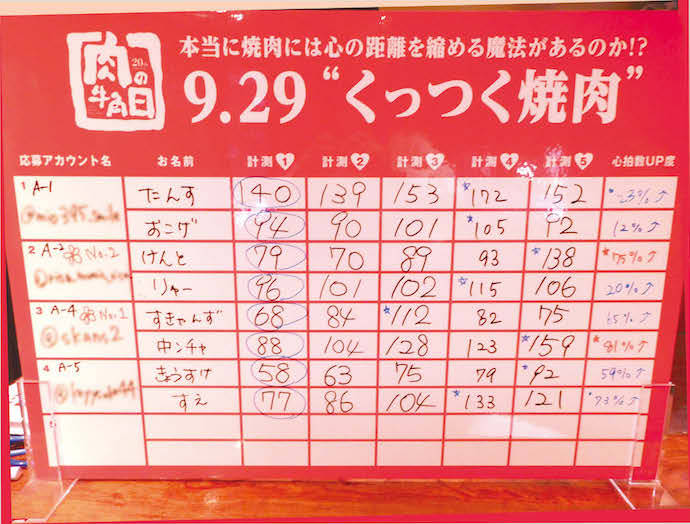 本当に焼肉には心の距離を縮める魔法があるのか!?
肉の日 20th 牛角
9.29 “くっつく焼肉”
応募アカウント名 お名前 計測1 計測2 計測3 計測4 計測5 心拍数UP度
1 A-1 たんす 140 139 153 *172 152 *23%↑
おこげ 94 90 101 *105 92 12%↑
2 A-2 No.2 けんと 79 70 89 93 *138 *75%↑
リャー 96 101 102 *115 106 20%↑
3 A-4 No.1 すきゃんず 68 84 *112 82 75 65%↑
@skans2
中ンチャ 88 104 128 123 *159 *81%↑
4 A-5 きょうすけ 58 63 75 79 *92 59%↑
すえ 77 86 104 *133 121 *73%↑
5